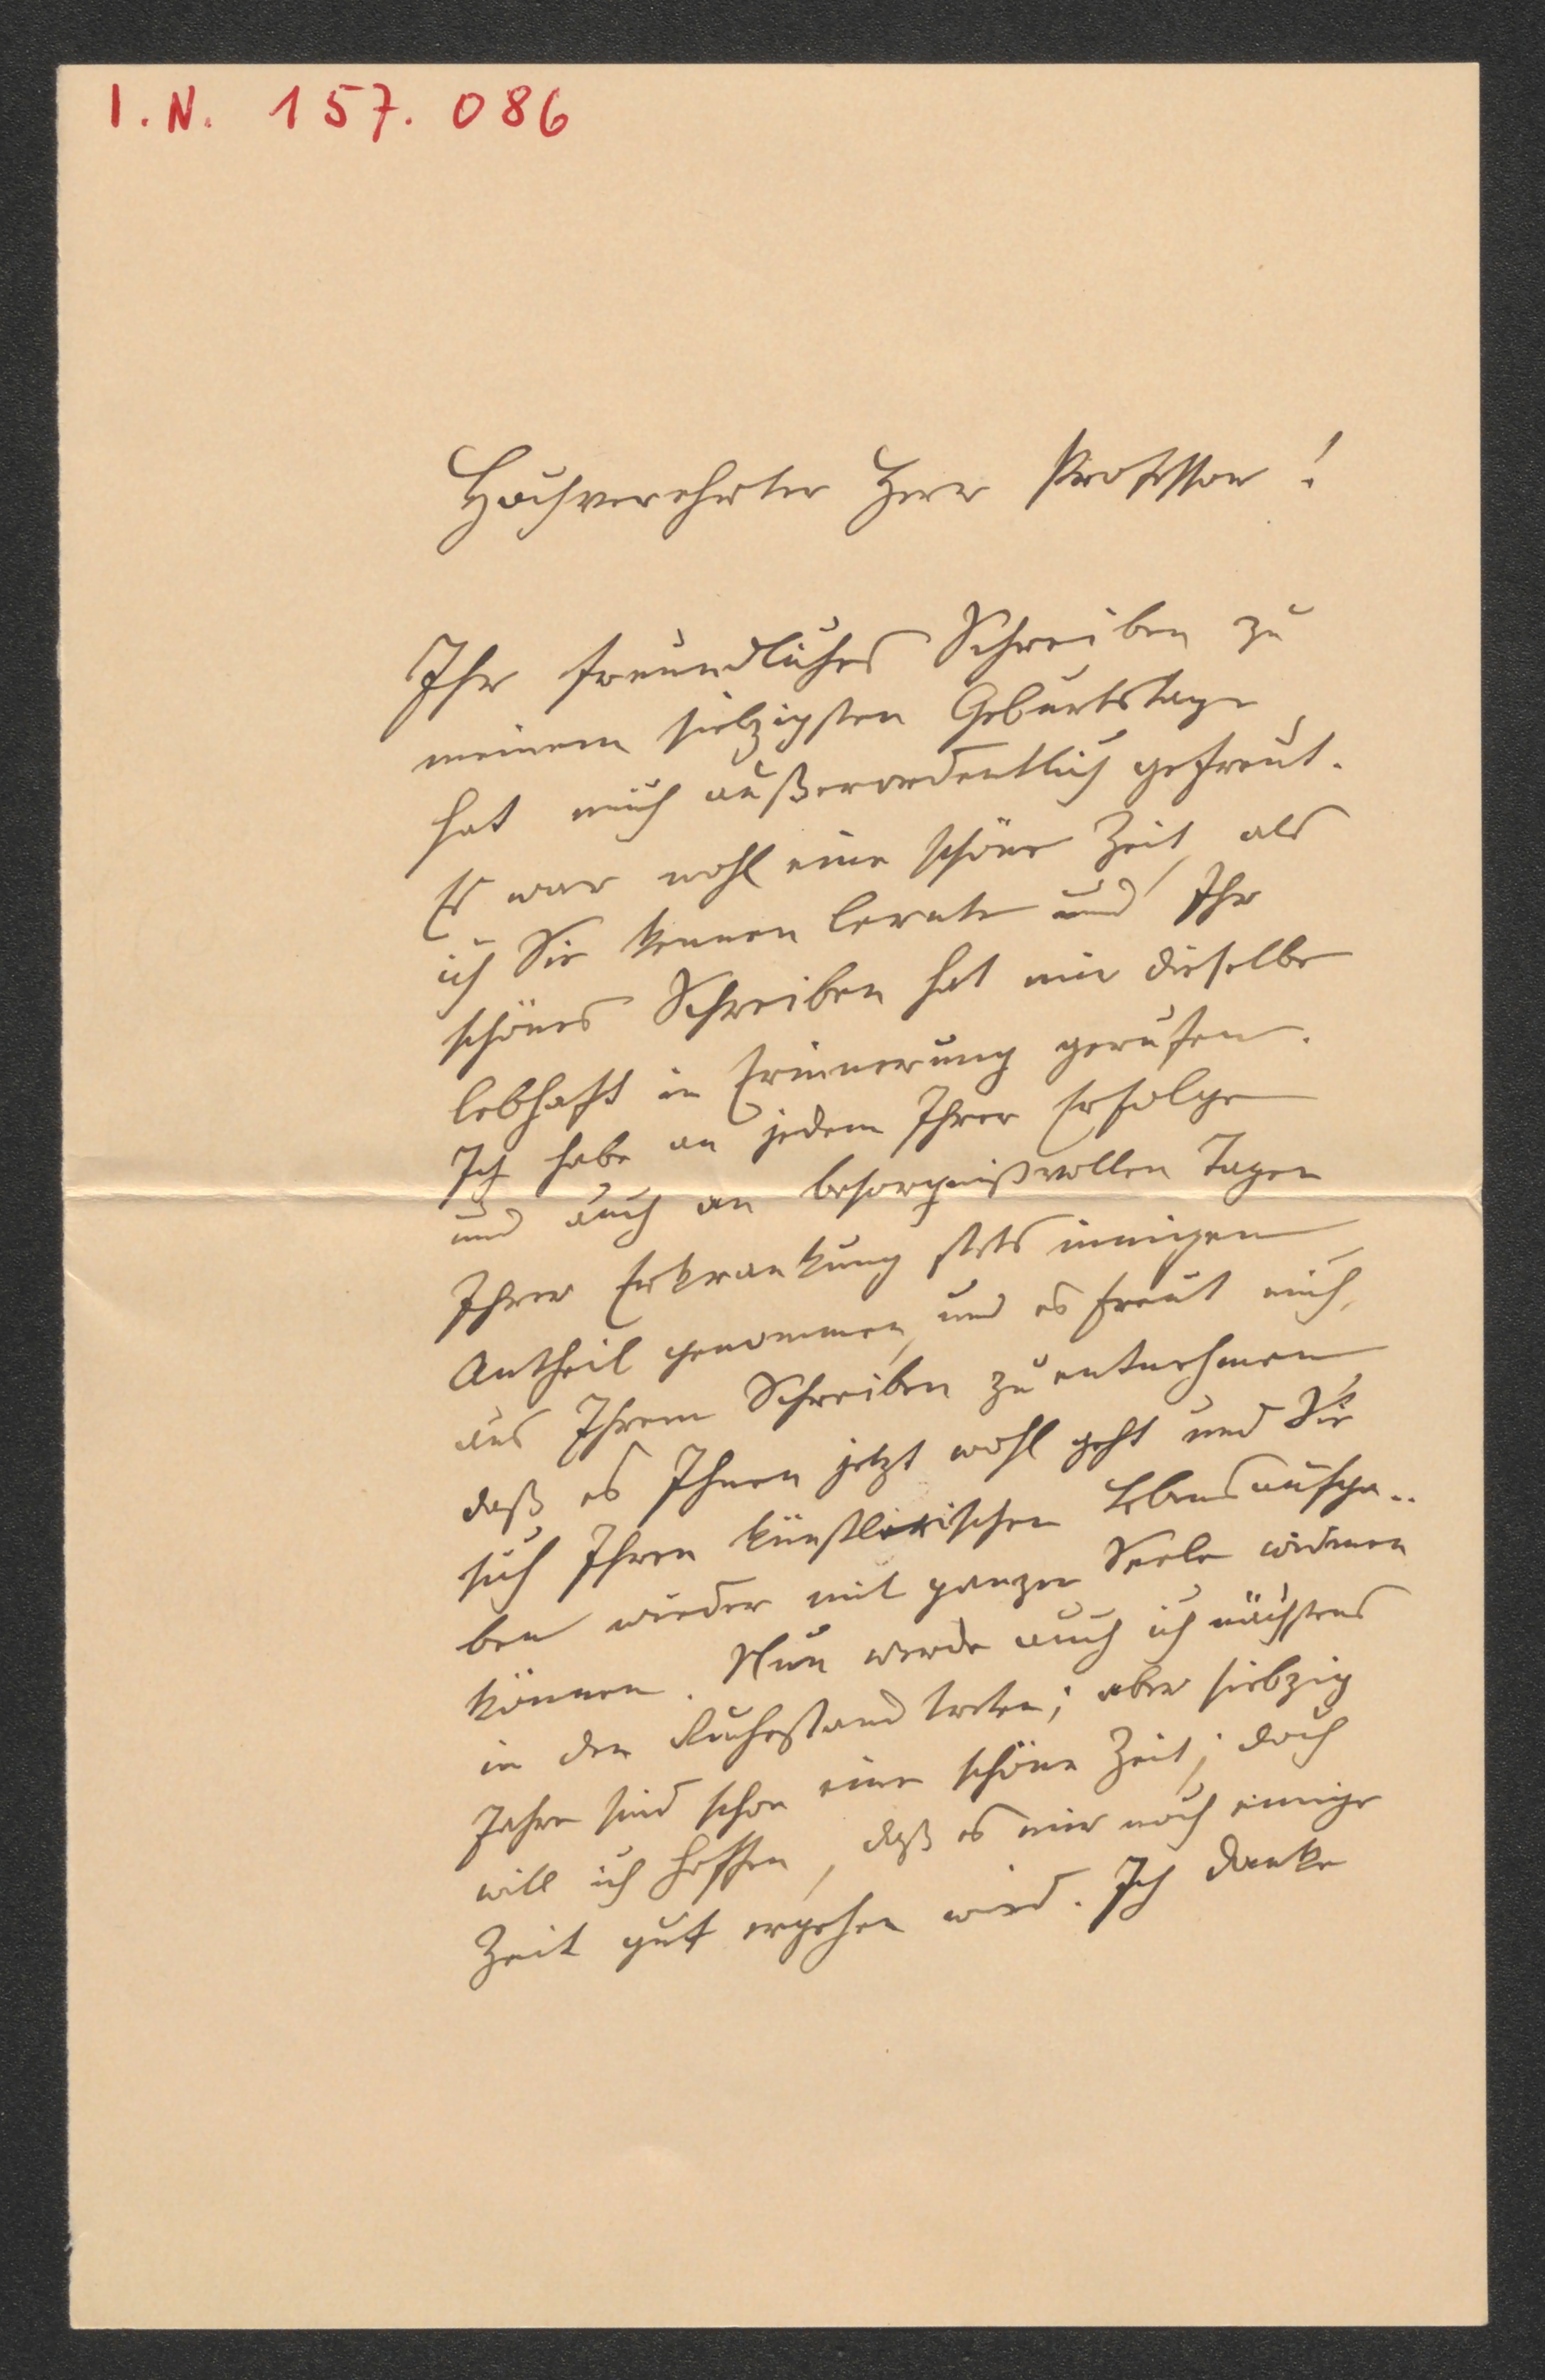 I. N. 157. 086
Hochverehrter Herr Professor!
Ihr freundliches Schreiben zu
meinem siebzigsten Geburtstage
hat mich außerordentlich gefreut.
Es war wohl eine schöne Zeit, als
ich Sie kennen lernte und Ihr
schönes Schreiben hat mir dieselbe
lebhaft in Erinnerung gerufen.
Ich habe an jedem Ihrer Erfolge
und auch an besorgnißvollen Tagen
Ihrer Erkrankung stets innigen
Antheil genommen, und es freut mich,
aus Ihrem Schreiben zu entnehmen,
daß es Ihnen jetzt wohl geht und Sie
sich Ihren künstlerischen Lebensaufga-
ben wieder mit ganzer Seele widmen
können. Nun werde auch ich nächstens
in den Ruhestand treten; aber siebzig
Jahre sind schon eine schöne Zeit; doch
will ich hoffen, daß es mir noch einige
Zeit gut ergehen wird. Ich danke